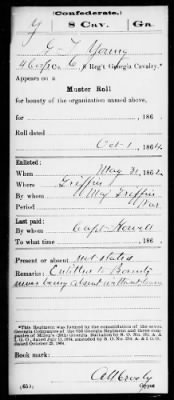 (Confederate.)
Y 8 Cav. Ga.
G T Young
Co. G, 8 Reg't Georgia Cavalry.*
Appears on a
Muster Roll
for bounty of the organization named above,
for , 186 .
Roll dated
Oct 1 , 1864.
Enlisted:
When May 31, 1862.
Where Griffin
By whom Maj Griffin
Period War
Last paid:
By whom Capt Howell
To what time , 186 .
Present or absent not stated
Remarks: Entitled to Bounty
never being absent without leave
*This Regiment was formed by the consolidation of the seven
Georgia Companies of the 62d Georgia Regiment and three com-
panies of Millen's (20th) Georgia Battalion by S. O. No. 161, A. &
I. G. O., dated July 11, 1864, amended by S. O. No. A. & I. G. O.,
dated October 1864.
Book mark:
(655) Copyist.